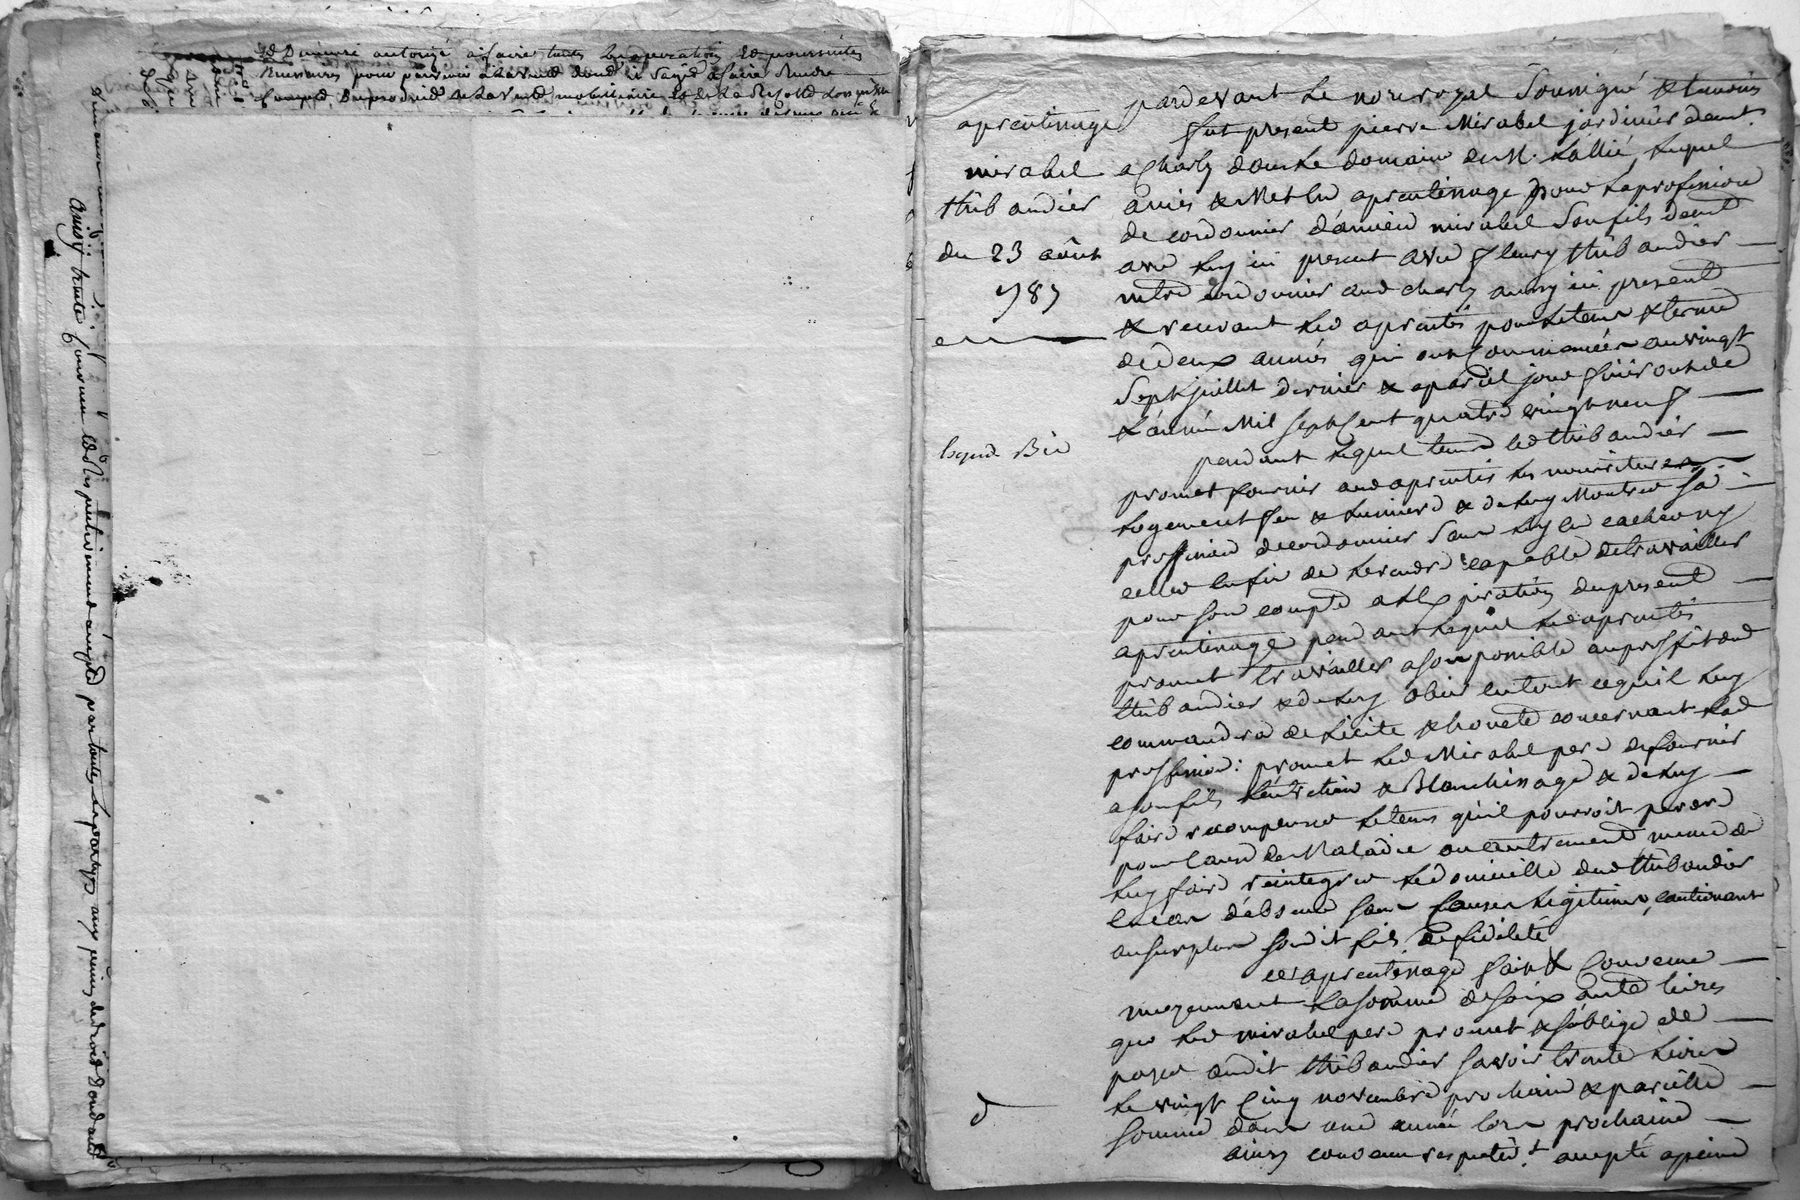 autorizé a faire toutes les operations et poursuittes
necessaires pour parvenir a la vente dont il s'agit a faire rendre
compte du produit de la vente mobiliaire et de la recolte
ainsy traité convenu et respectivement accepté par touttes les parties aux peines de droit
aprentissage
mirabel
thibaudier
du 23 août
787
Expedié
pardevant le no.re royal soussigné & temoins
fut present pierre Mirabel jardinier demt.
a Charly dans le domaine de M. Lallié, lequel
a mis & Met en aprentissage pour la profession
de cordonnier damien mirabel son fils demt
avec luy ici present avec fleury thibaudier
mtre cordonnier aud charly aussy ici present
& recevant led aprentis pour le tems & terme
de deux années qui ont commencées au vingt
sept juillet dernier & a pareil jour finiront de
l'année Mil sept cent quatre vingt neuf
pendant lequel tems led thibaudier
promet fournir aud aprentis les nourritures
logement feu & lumiere & de luy Montrer sa
profession de cordonnier sans luy en cacher ny
celer enfin de le rendre capable de travailler
pour son compte a l'expiration du present
aprentissage pendant lequel led aprentis
promet travailler a son possible au proffit dud
thibaudier & de luy obeir en tout ce qu'il luy
commandra de licite & honete concernant lad
proffession: promet led Mirabel pere de fournir
a son fils l'entretien & Blanchissage & de luy
faire recompenser le tems qu'il pourroit perdre
pour cause de Maladie ou autrement meme de
luy faire reintegrer le domicille dud thibaudier
en cas d'absence sans causes legitimes, cautionant
au surplus sondit fils de fidelité
cet aprentissage fait & convenu
moyennant la somme de soixante livres
que led mirabel pere promet & s'oblige de
payer audit thibaudier savoir trente livres
le vingt cinq novembre prochain & pareille
somme dans une année lors prochaine
ainsy convenu respectet. accepté a peine